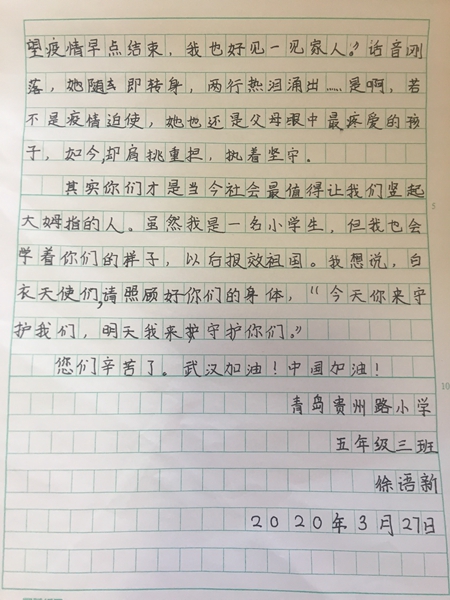 望疫情早点结束，我也好见一见家人。”话音刚
落，她随即转身，两行热泪涌出……是啊，若
不是疫情迫使，她也还是父母眼中最疼爱的孩
子，如今却肩挑重担，执着坚守。
其实你们才是当今社会最值得让我们竖起
大姆指的人。虽然我是一名小学生，但我也会
学着你们的样子，以后报效祖国。我想说，白
衣天使们，请照顾好你们的身体，“今天你来守
护我们，明天我来守护你们。”
您们辛苦了。武汉加油！中国加油！
青岛贵州路小学
五年级三班
徐语新
2020年3月27日
5
10